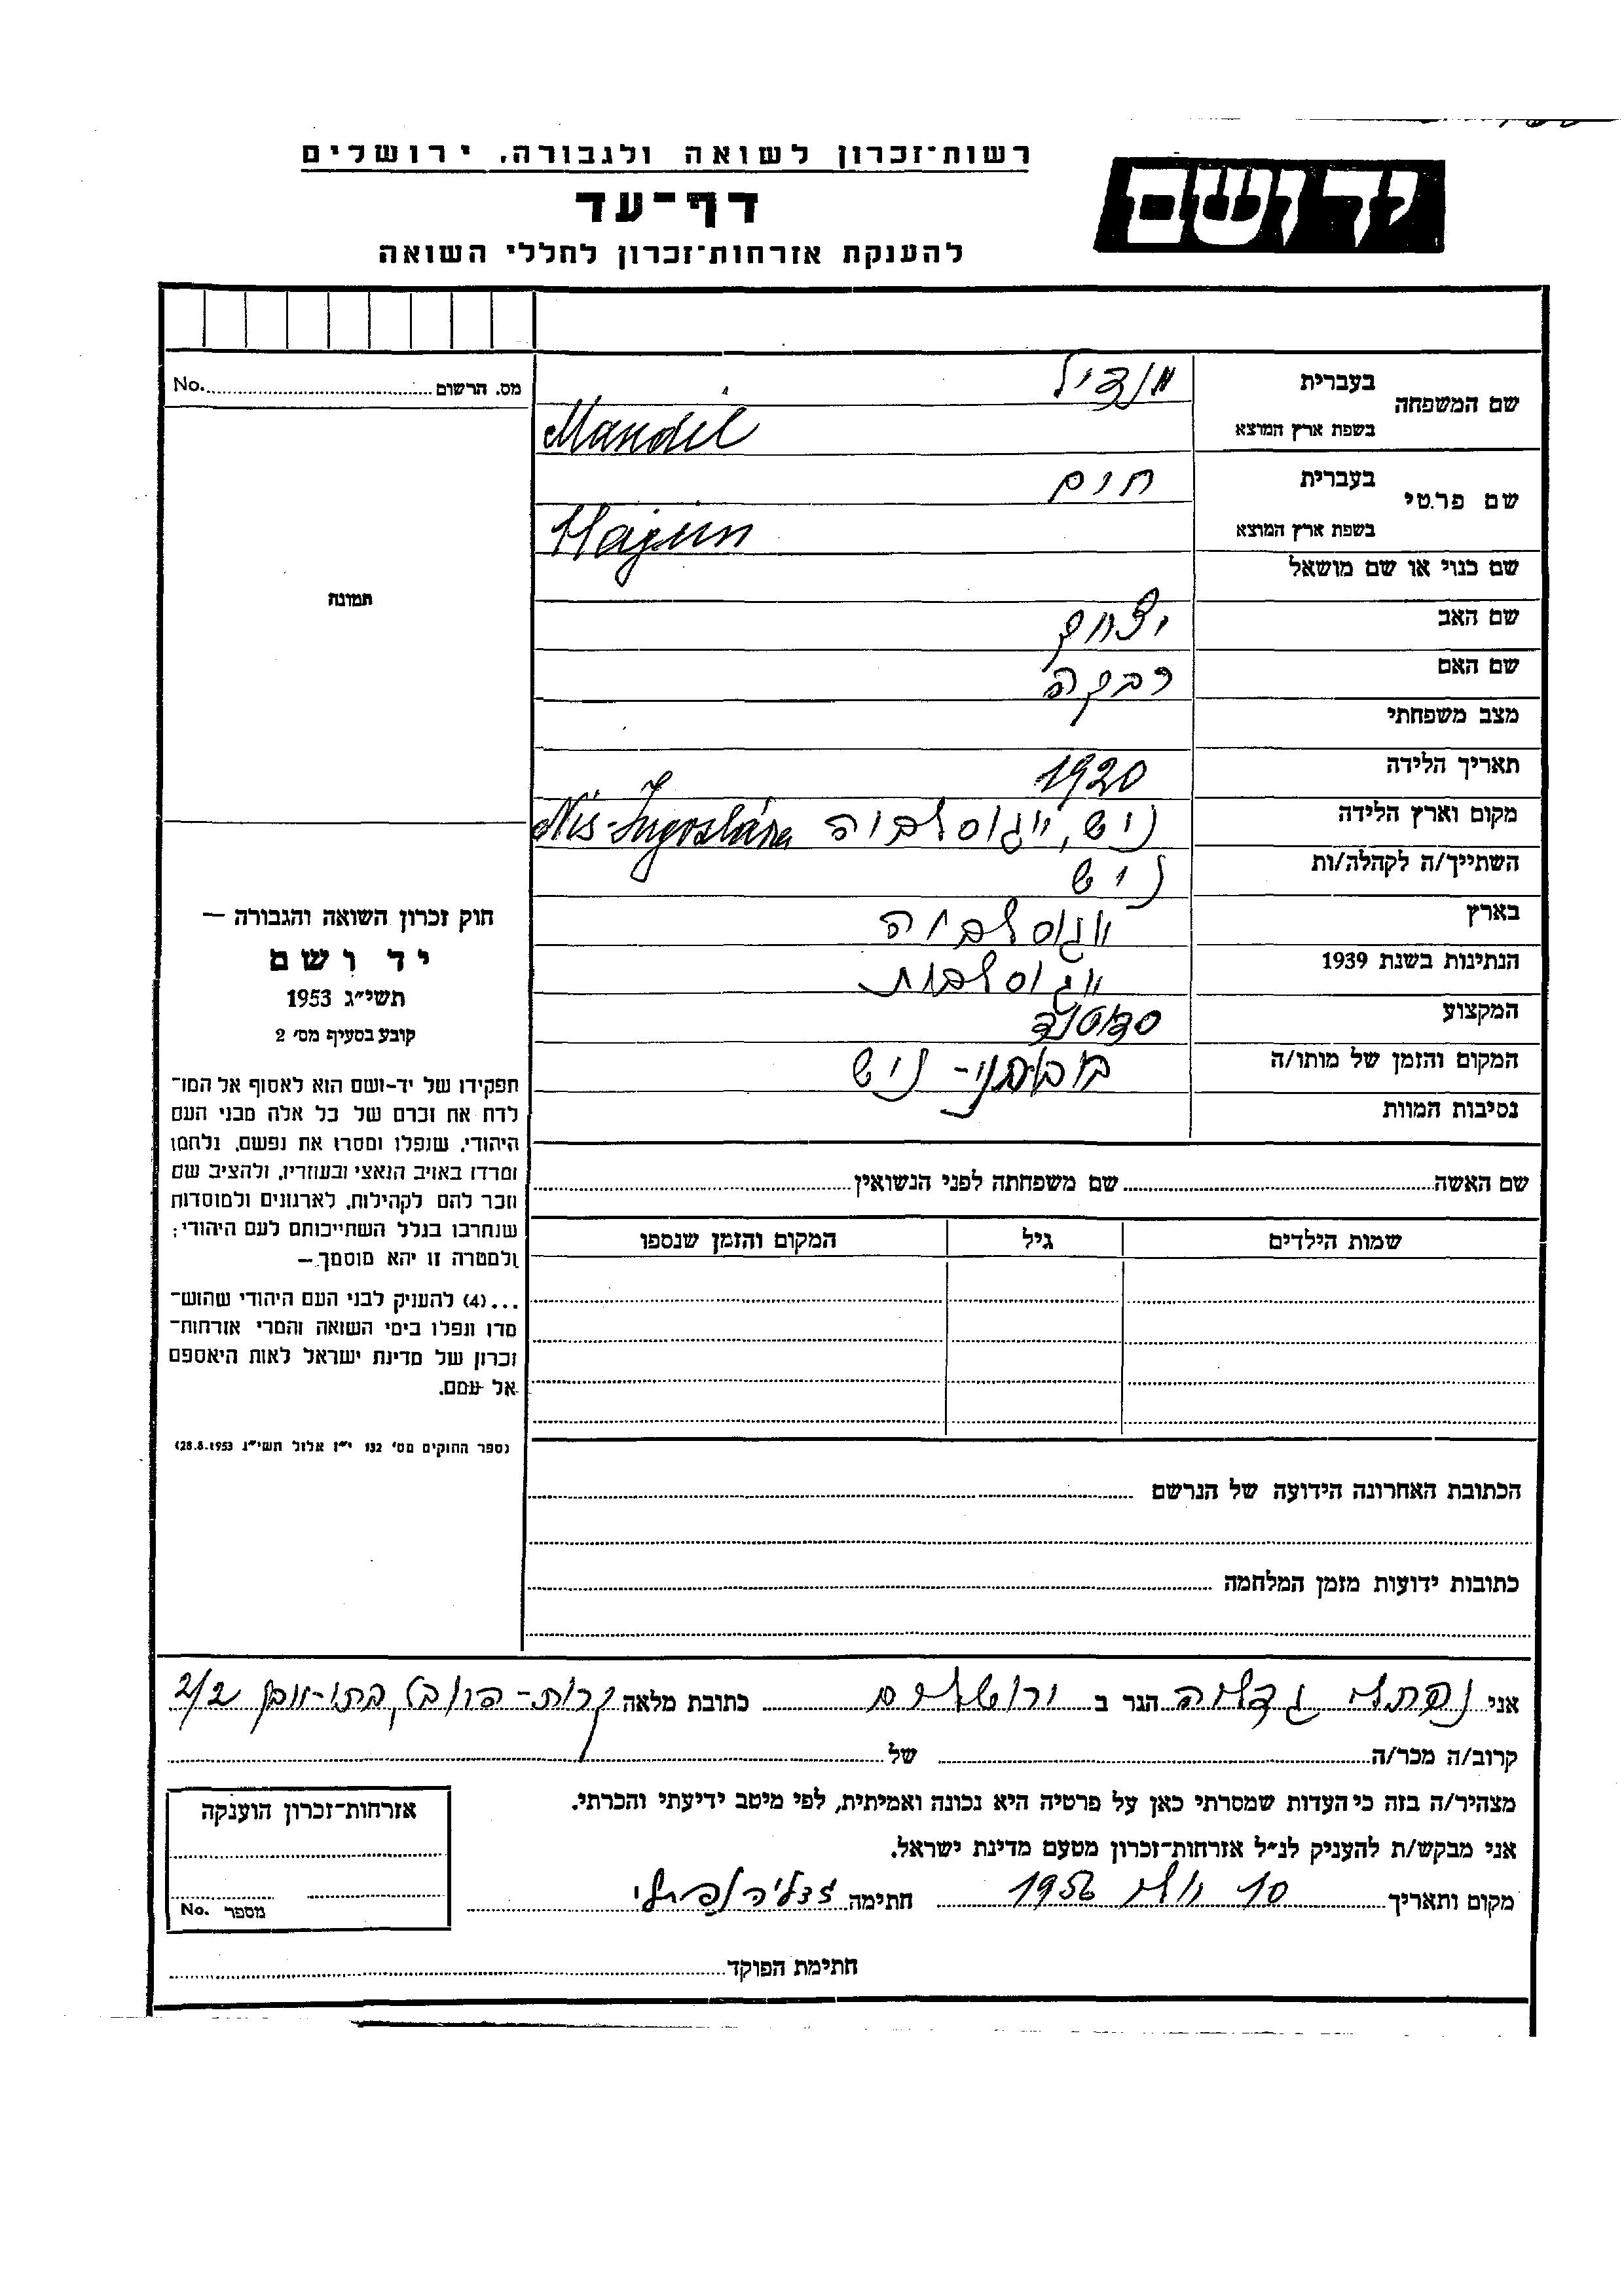 רשות־זכרון לשואה ולגבורה, ירושלים
יד ושם
דף־עד
להענקת אזרחות־זכרון לחללי השואה
מס. הרשום No.
שם המשפחה
בעברית מנדיל
בשפת ארץ המוצא Mandil
שם פרטי
בעברית חיים
בשפת ארץ המוצא Hajim
שם כנוי או שם מושאל
שם האב יצחק
שם האם רבקה
מצב משפחתי
תאריך הלידה 1920
מקום וארץ הלידה ניש, יוגוסלביה Nis-Jugoslavia
השתייך/ה לקהלה/ות ניש
בארץ יוגוסלביה
הנתינות בשנת 1939 יוגוסלבית
המקצוע סטודנט
המקום והזמן של מותו/ה בובאמי - ניש
נסיבות המוות
תמונה
חוק זכרון השואה והגבורה —
יד ושם
תשי״ג 1953
קובע בסעיף מס׳ 2
תפקידו של יד-ושם הוא לאסוף אל המו־
לדת את זכרם של כל אלה מבני העם
היהודי, שנפלו ומסרו את נפשם, נלחמו
ומרדו באויב הנאצי ובעוזריו, ולהציב שם
וזכר להם לקהילות, לארגונים ולמוסדות
שנחרבו בגלל השתייכותם לעם היהודי;
ולמטרה זו יהא מוסמך —
...(4) להעניק לבני העם היהודי שהוש־
מדו ונפלו בימי השואה והמרי אזרחות־
זכרון של מדינת ישראל לאות היאספם
אל עמם.
(ספר החוקים מס׳ 132 י״ז אלול תשי״ג 28.8.1953)
שם האשה שם משפחתה לפני הנשואין
שמות הילדים גיל המקום והזמן שנספו
הכתובת האחרונה הידועה של הנרשם
כתובות ידועות מזמן המלחמה
אני נפתלי גדליה הגר ב ירושלים כתובת מלאה קרית-היובל, 2/2
קרוב/ה מכר/ה של
מצהיר/ה בזה כי העדות שמסרתי כאן על פרטיה היא נכונה ואמיתית, לפי מיטב ידיעתי והכרתי.
אני מבקש/ת להעניק לנ״ל אזרחות־זכרון מטעם מדינת ישראל.
מקום ותאריך 10 יולי 1956 חתימה גדליה נפתלי
אזרחות־זכרון הוענקה
מספר No.
חתימת הפוקד